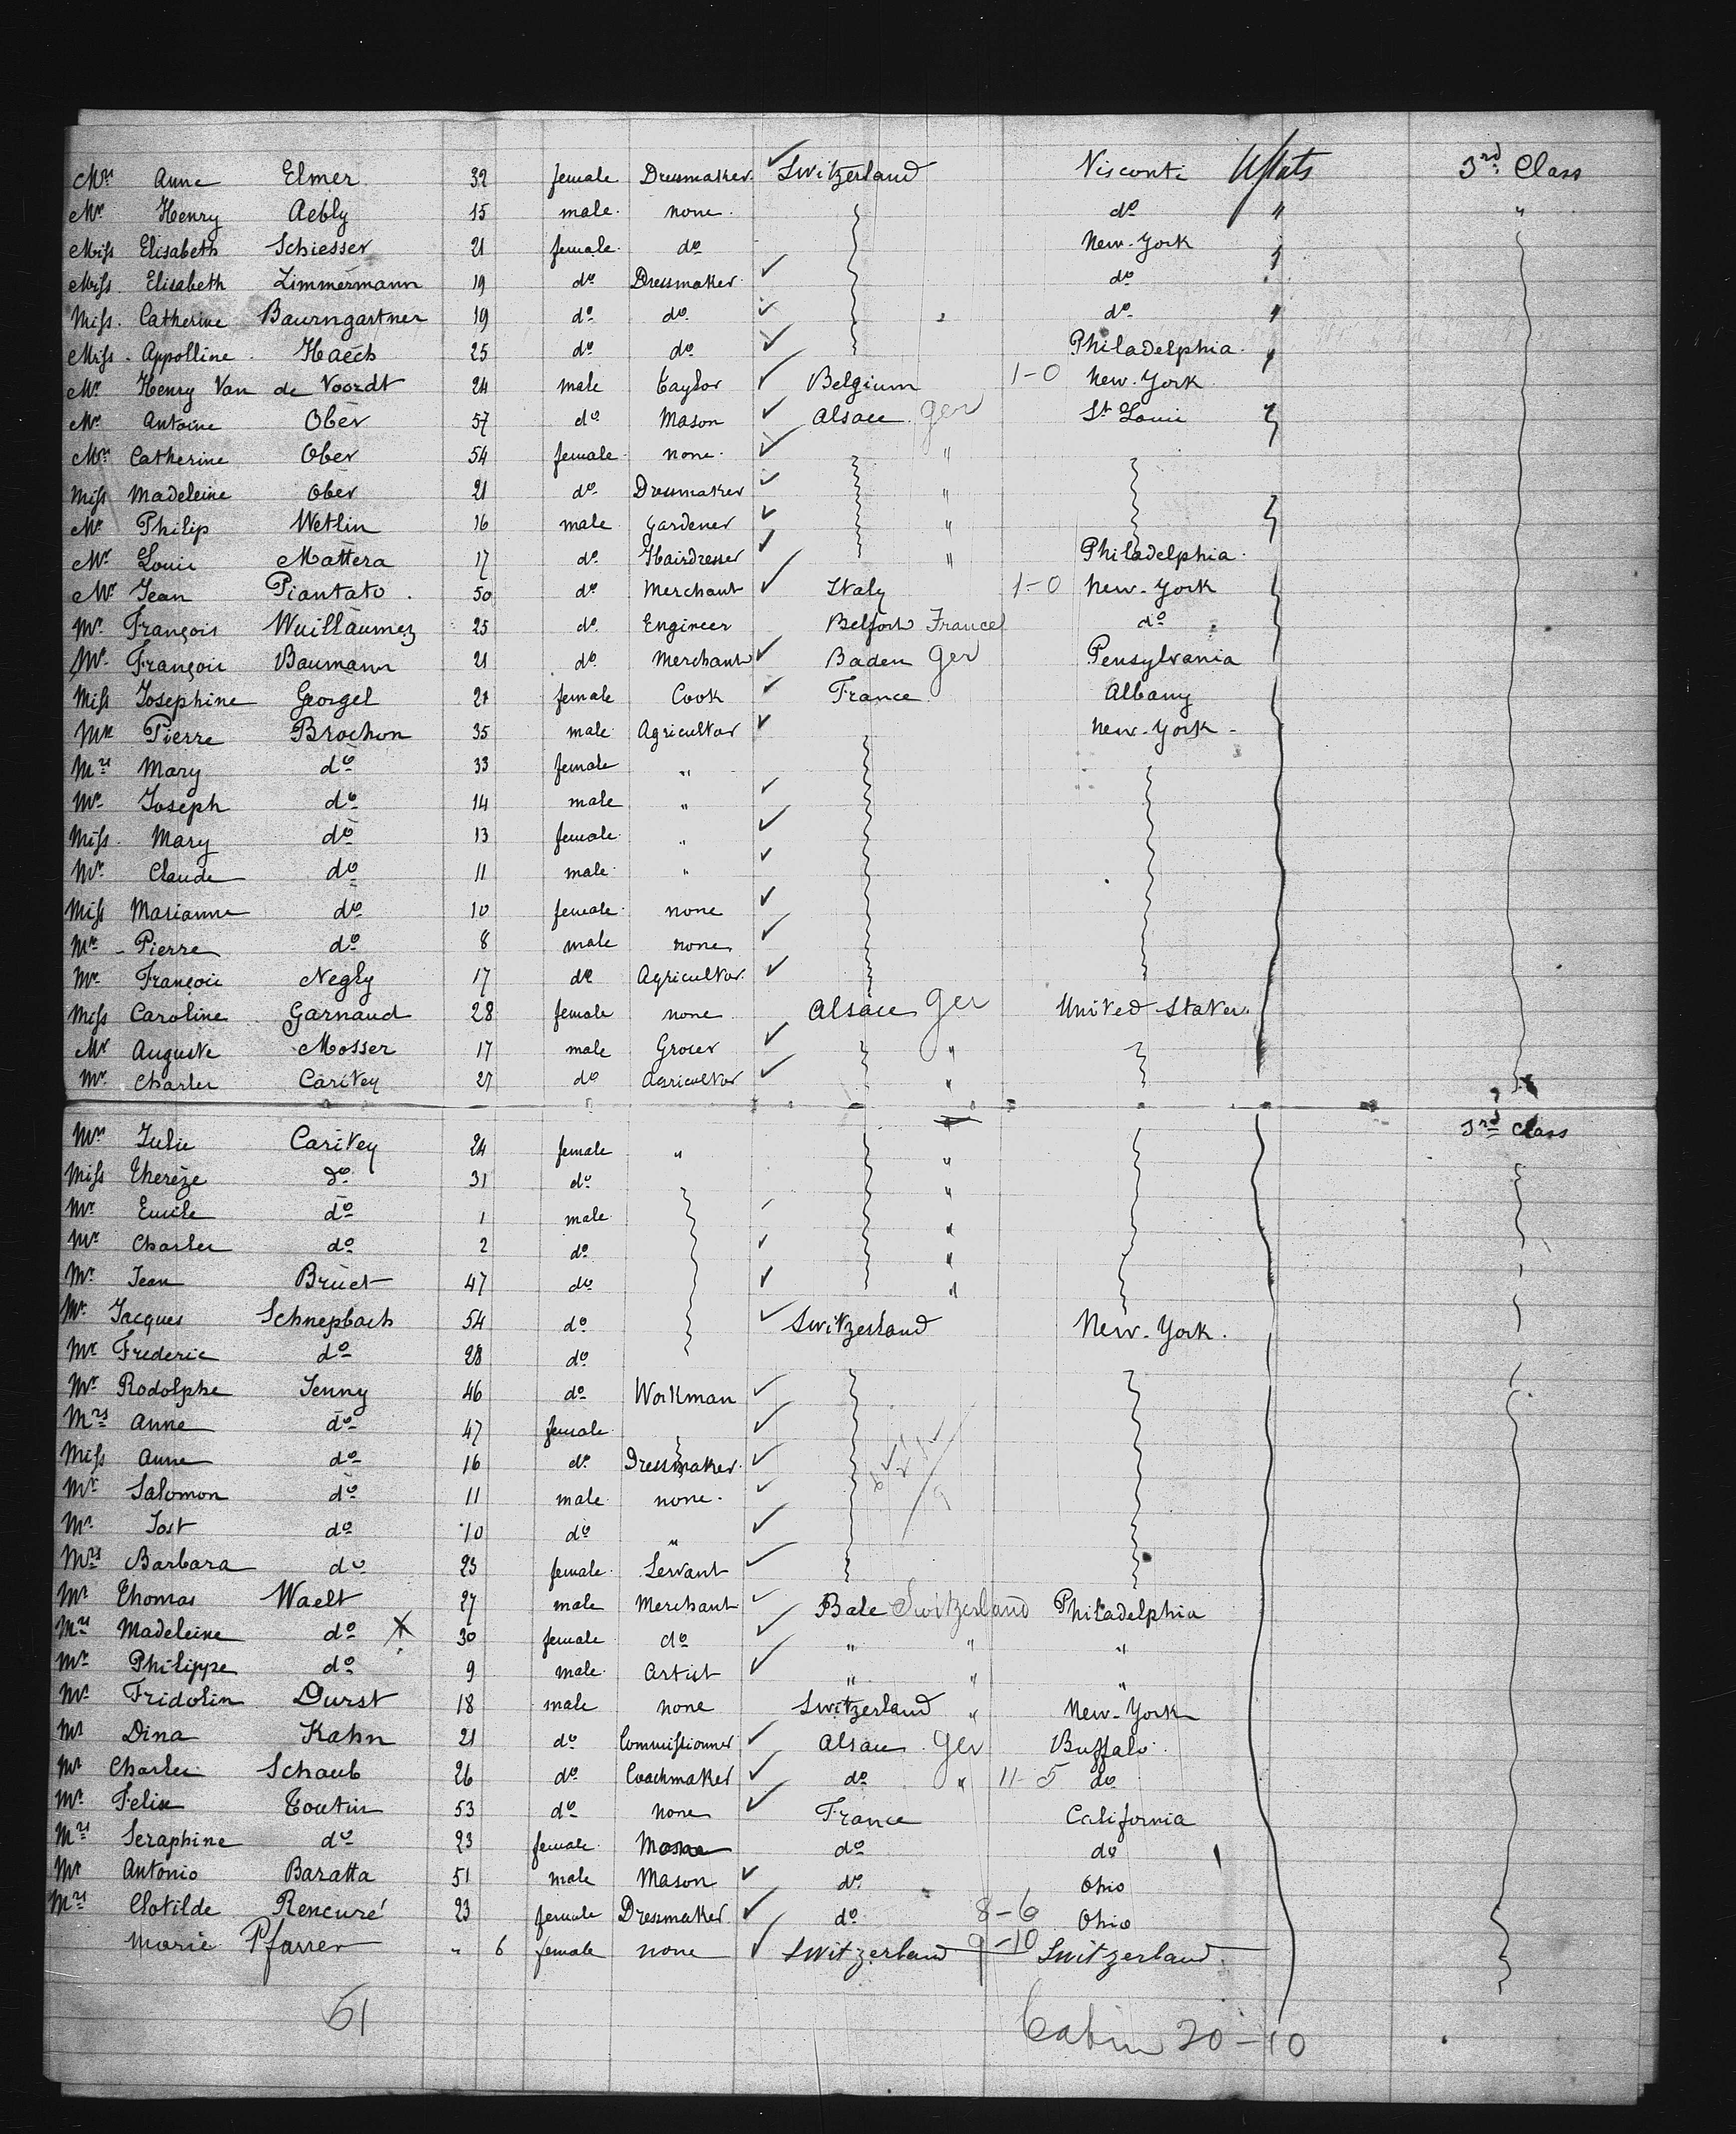 Mrs Anne Elmer 32 female Dressmaker Switzerland Visconti U/Stats 3rd Class
Mr Henry Aebly 15 male none do " "
Miss Elisabeth Schiesser 21 female do New-York
Miss Elisabeth Zimmermann 19 do Dressmaker do "
Miss Catherine Baumgartner 19 do do do "
Miss Appolline Haech 25 do do Philadelphia
Mr Henry Van de Voordt 24 male taylor Belgium 1-0 New-York
Mr Antoine Ober 57 do Mason Alsace Ger St Louis
Mrs Catherine Ober 54 female none "
Miss Madeleine Ober 21 do Dressmaker "
Mr Philip Wetlin 16 male Gardener "
Mr Louis Mattera 17 do Hairdresser " Philadelphia
Mr Jean Piantato 50 do Merchant Italy 1-0 New-York
Mr François Wuillaumez 25 do Engineer Belfort France do
Mr François Baumann 21 do Merchant Baden Ger Pensylvania
Miss Josephine Georgel 21 female Cook France Albany
Mr Pierre Brochon 35 male Agricultor New-York
Mrs Mary do 33 female "
Mr Joseph do 14 male "
Miss Mary do 13 female "
Mr Claude do 11 male "
Miss Marianne do 10 female none
Mr Pierre do 8 male none
Mr François Negly 17 do Agricultor
Miss Caroline Garnaud 28 female none Alsace Ger United States
Mr Auguste Mosser 17 male Grocer "
Mr Charles Caritey 27 do Agricultor "
Mrs Julie Caritey 24 female " " 3rd Class
Miss Therèze do 31 do "
Mr Emile do 1 male "
Mr Charles do 2 do "
Mr Jean Bruet 47 do "
Mr Jacques Schnepbach 54 do Switzerland New-York
Mr Frederic do 28 do
Mr Rodolphe Jenny 46 do Workman
Mrs Anne do 47 female
Miss Anne do 16 do Dressmaker
Mr Salomon do 11 male none
Mr Jost do 10 do "
Mrs Barbara do 23 female Servant
Mr Thomas Waelt 27 male Merchant Bale Switzerland Philadelphia
Mrs Madeleine do X 30 female do " " "
Mr Philippe do 9 male Artist " " "
Mr Fridolin Durst 18 male none Switzerland " New-York
Mr Dina Kahn 21 do Commissionner Alsace Ger Buffalo
Mr Charles Schaub 26 do Coachmaker do " 11-5 do
Mr Felix Toutin 53 do none France California
Mrs Seraphine do 23 female do do
Mr Antonio Baratta 51 male Mason do Ohio
Mrs Clotilde Rencuré 23 female Dressmaker do 8-6 Ohio
Marie Pfarrer " 6 female none Switzerland 9-10 Switzerland
51 Cabin 20-10